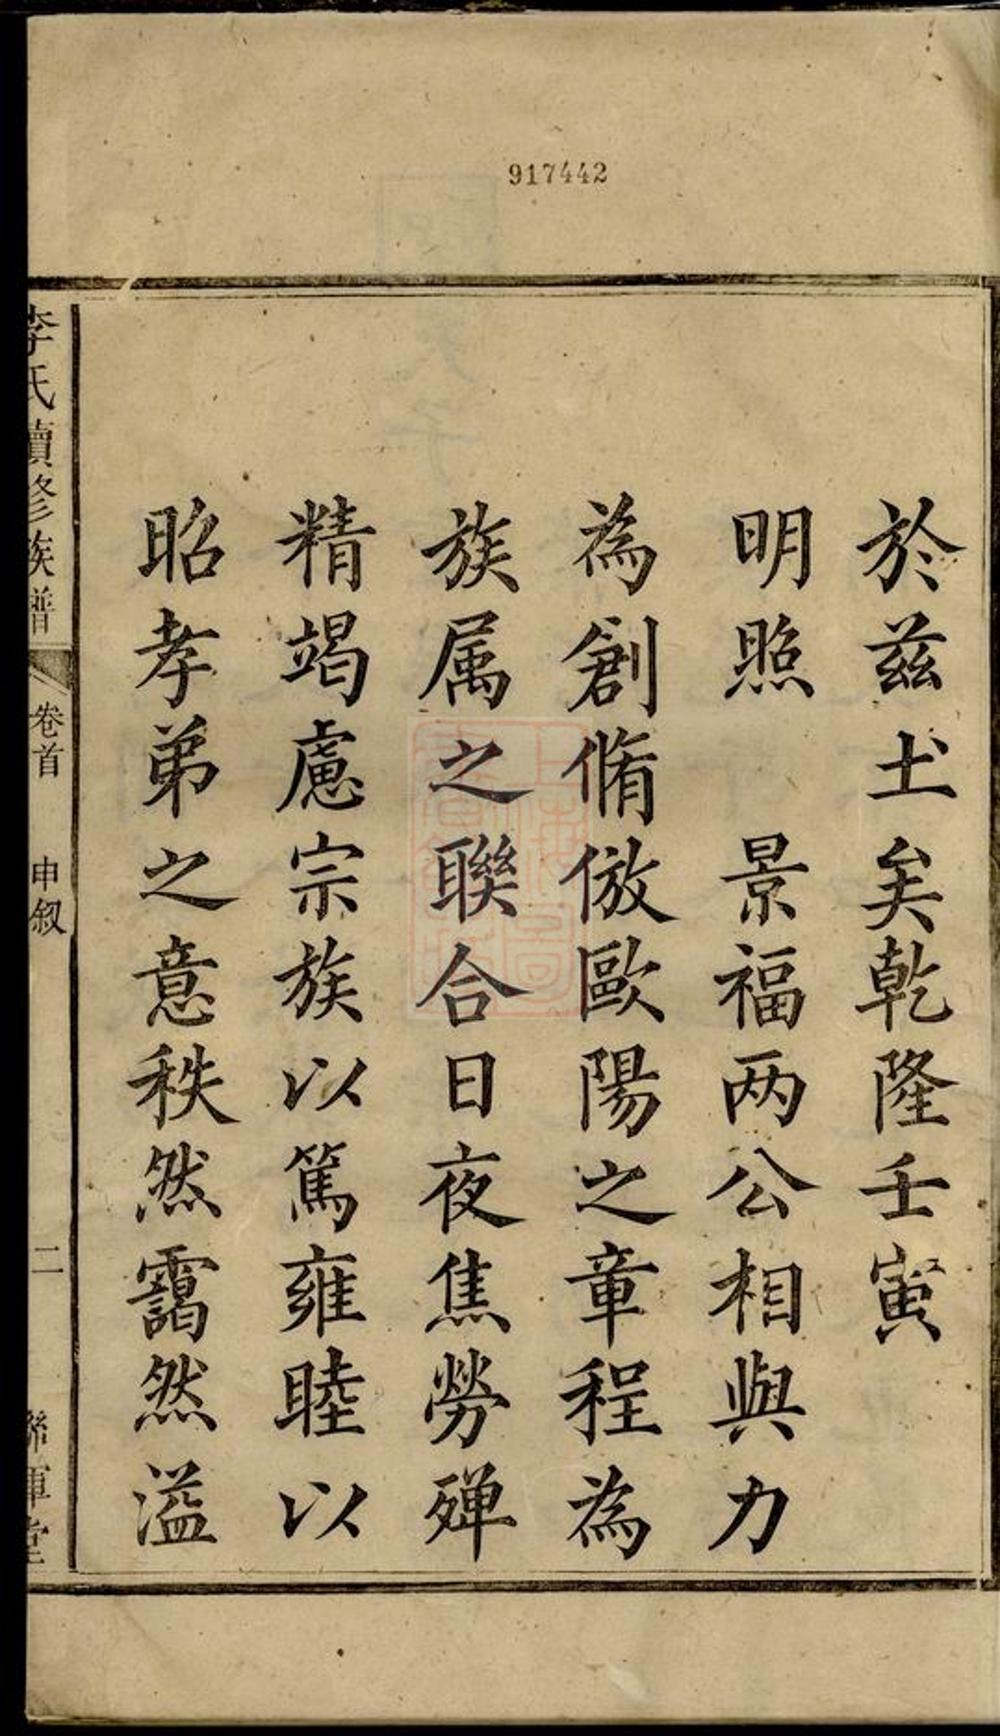 917442
於兹土矣乾隆壬寅
明照　景福两公相與力
為創脩倣歐陽之章程為
族属之聯合日夜焦勞殫
精竭慮宗族以篤雍睦以
昭孝弟之意秩然靄然溢
李氏續修族譜
卷首　申叙
二
聯軍堂